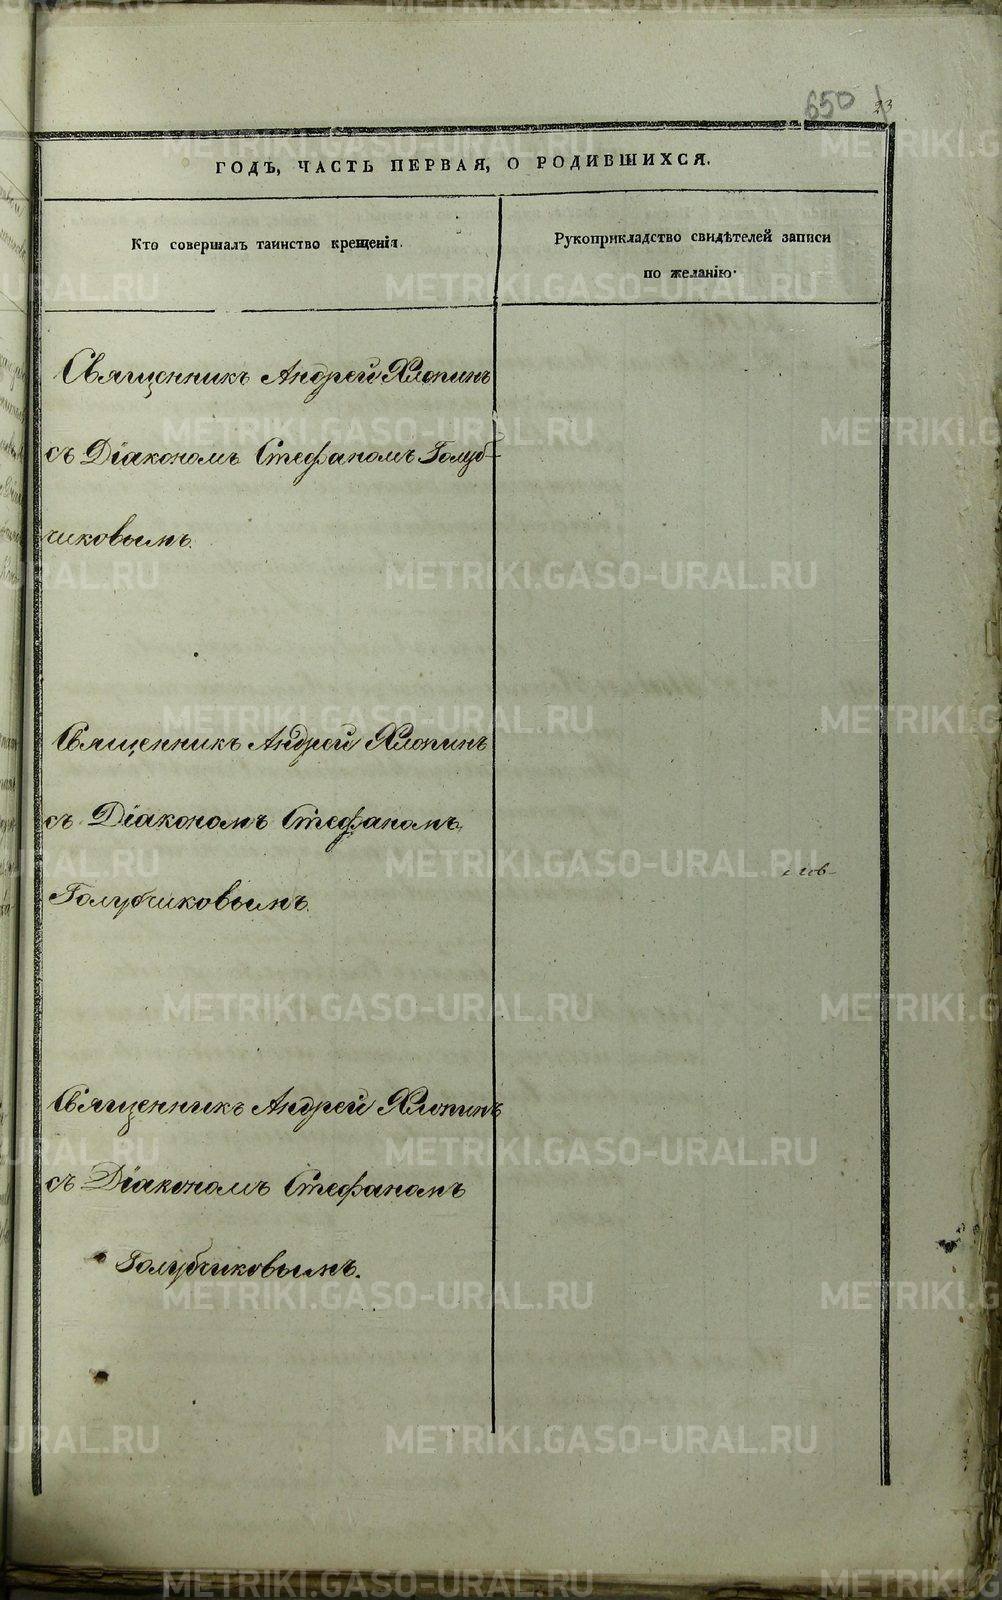 650 23
ГОДЪ, ЧАСТЬ ПЕРВАЯ, О РОДИВШИХСЯ.
Кто совершалъ таинство крещенія.
Рукоприкладство свидѣтелей записи
по желанію.
Священникъ Андрей Хлопинъ
съ Діакономъ Стефаномъ Голуб-
чиковымъ.
Священникъ Андрей Хлопинъ
съ Діакономъ Стефаномъ
Голубчиковымъ.
Священникъ Андрей Хлопинъ
съ Діакономъ Стефаномъ
Голубчиковымъ.
METRIKI.GASO-URAL.RU